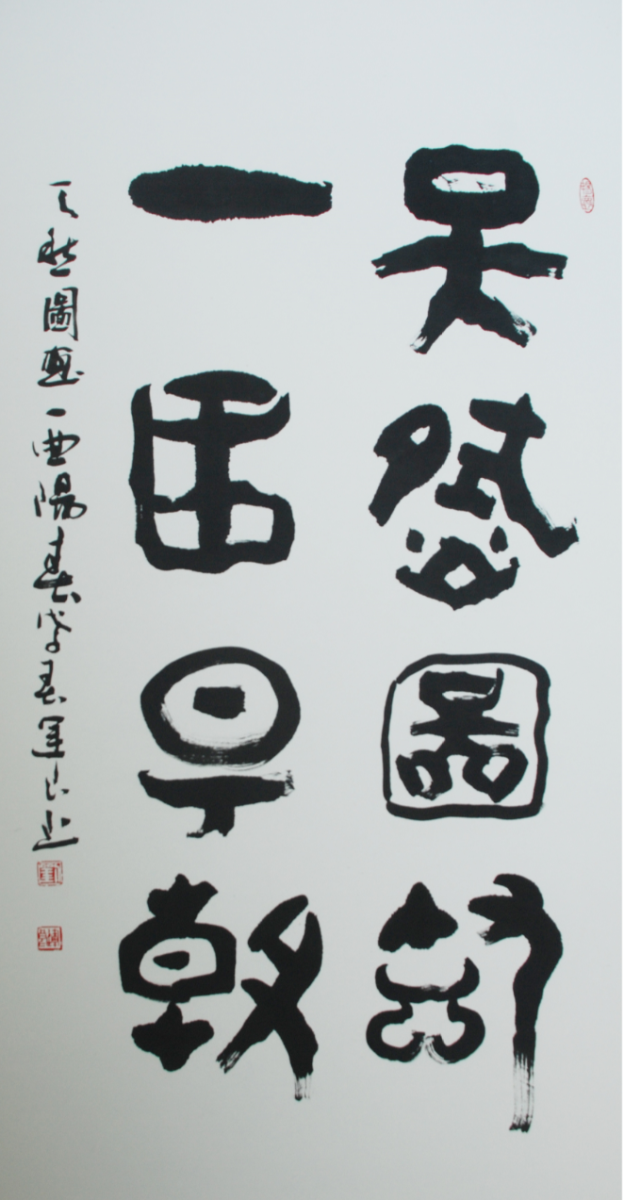 天然圖畫
一曲陽春
天然圖畫一曲陽春